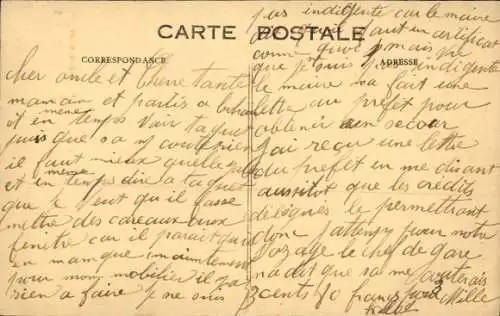 CARTE POSTALE
CORRESPONDANCE
ADRESSE
cher oncle et cherre tante
maman et partis a
et en même temps voir taquet
puis que sa n
il faut mieux quelle
et en même temps dire a taquet
que le veut qu'il fasse
mettre des careaux aux
fenetre car il parait qu'il
en manque maintement
pour mon mobilier il n'a
rien a faire je ne suis
pas indigente car le maire
dit qu'il faut un certificat
comme quoi mais
que je suis indigente
le maire ma fait une
lettre au prefet pour
obtenir un secour
j'ai reçu une lettre
du prefet en me disant
aussitot que les crédits
délégués le permettrant
donc j'attens pour notre
le chef de gare
na dit que sa me couterais
3 cents 10 francs pour
Mille